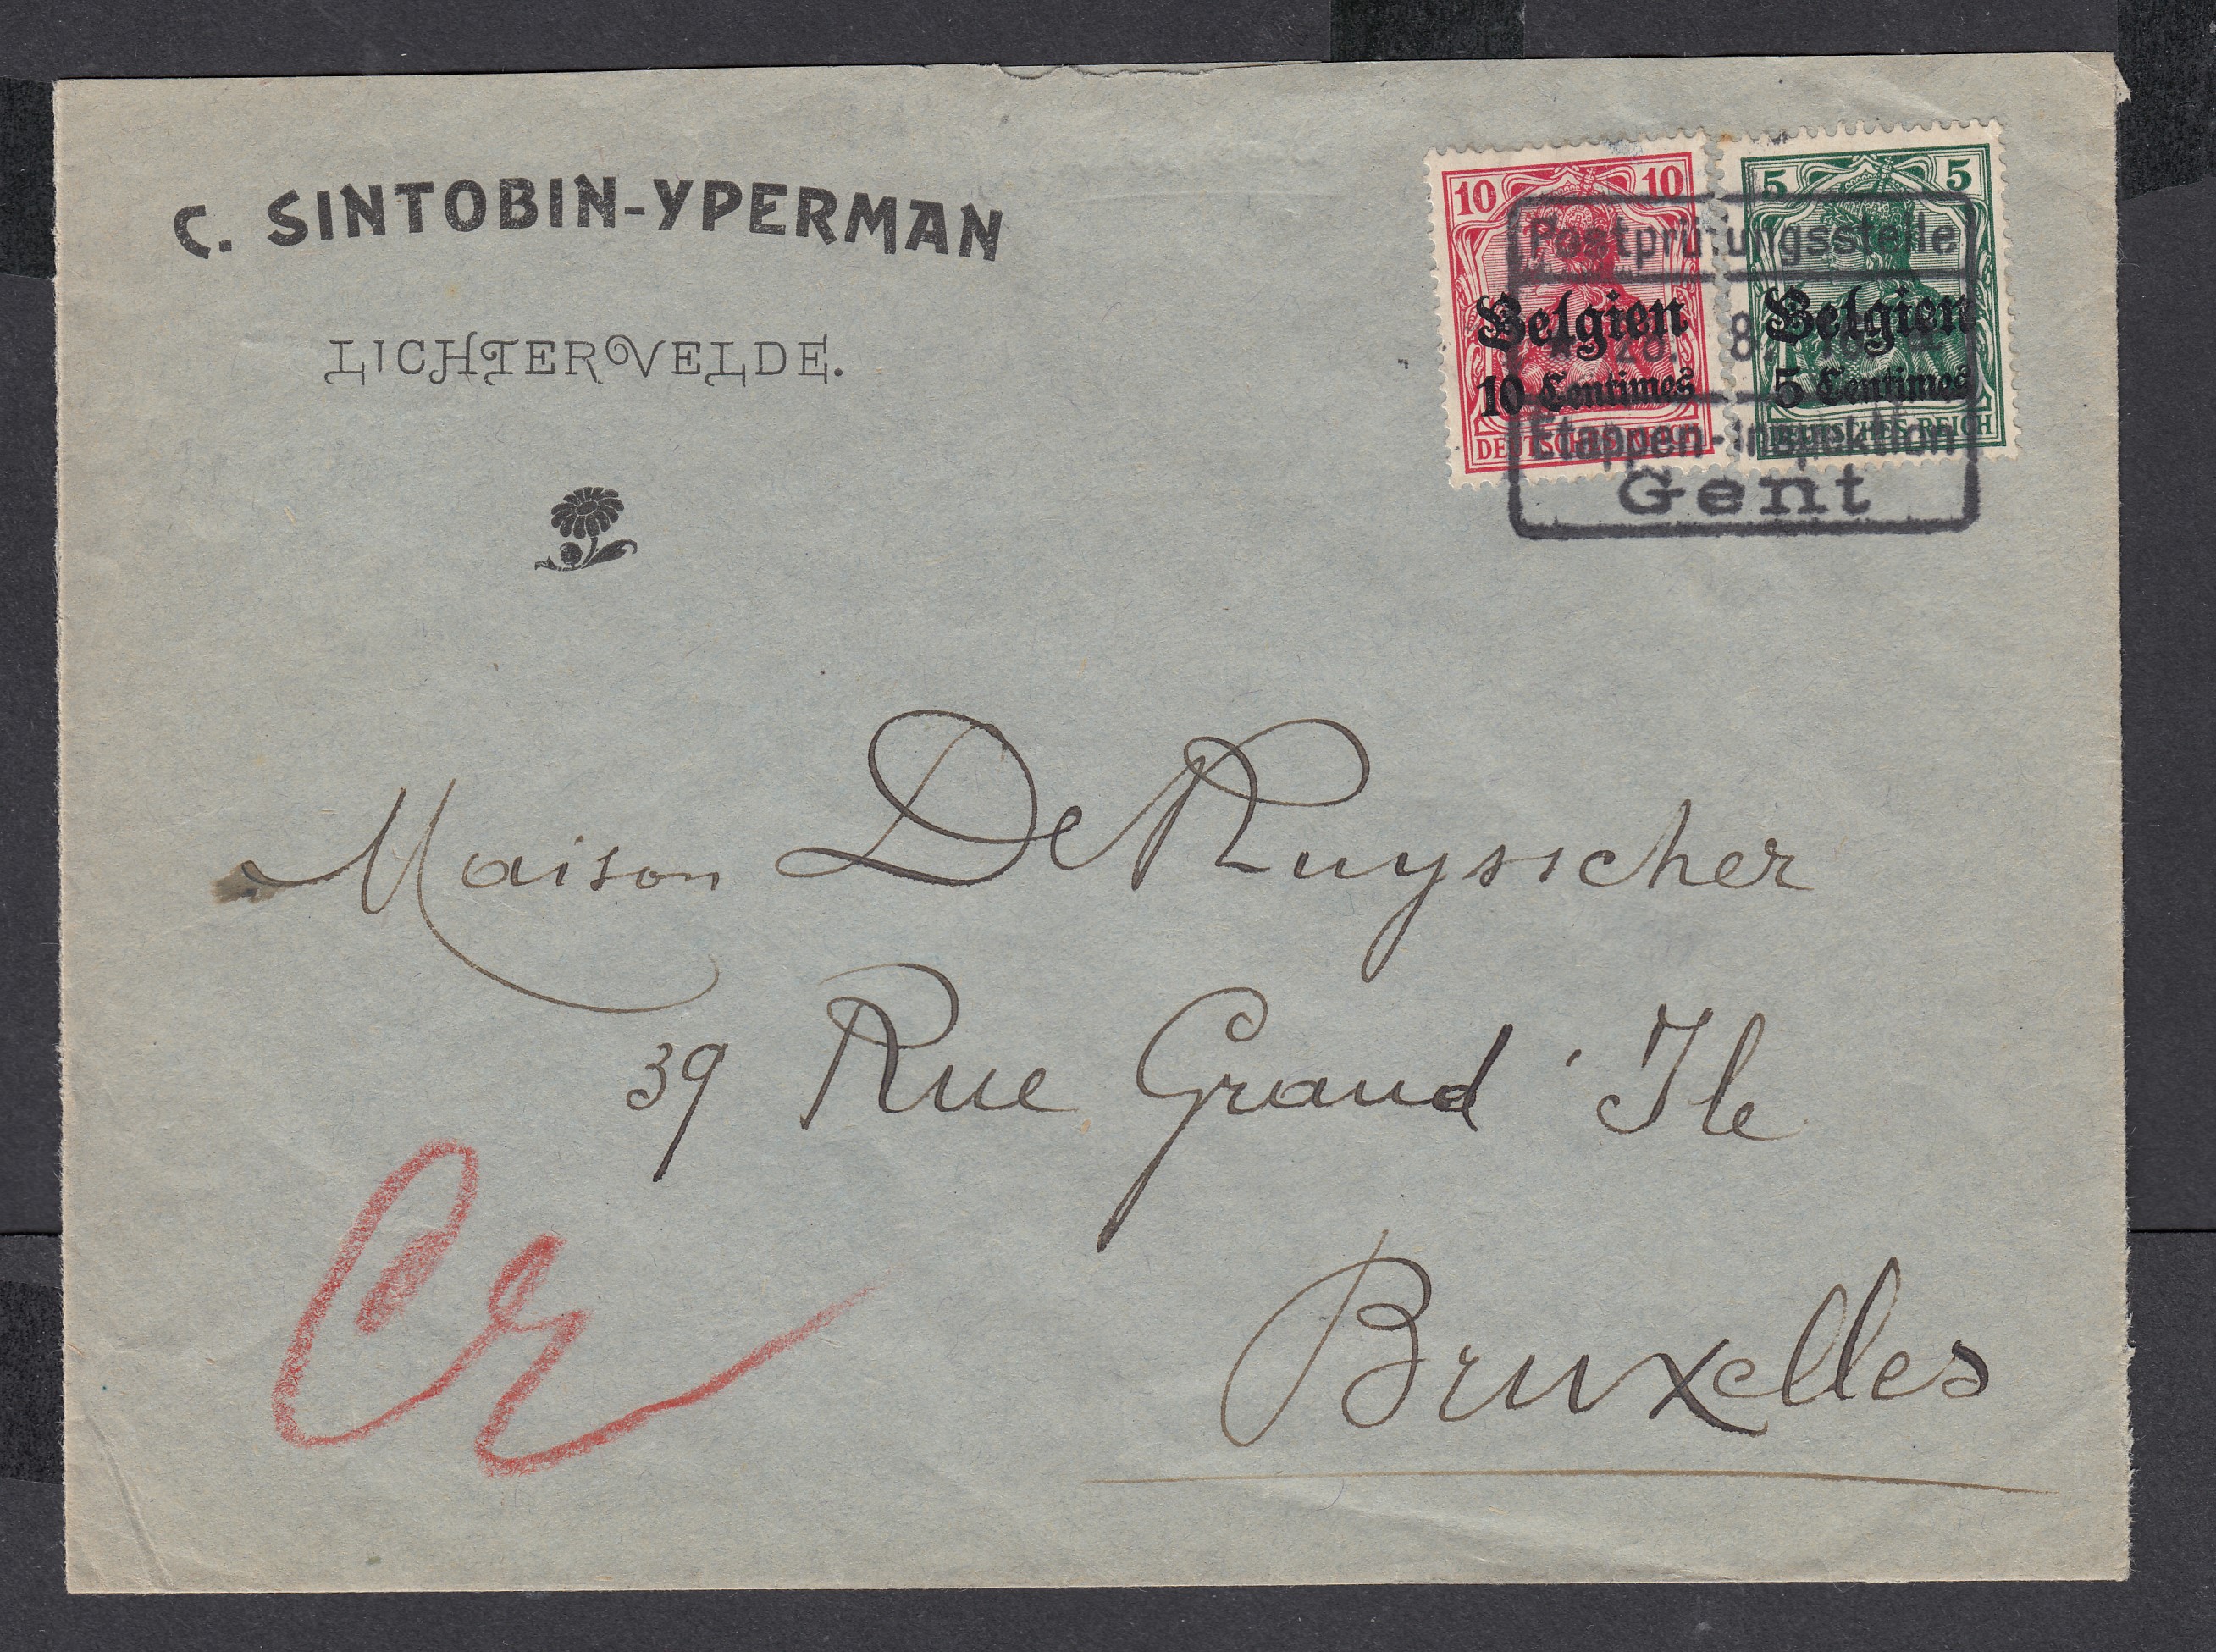 C. SINTOBIN-YPERMAN
LICHTERVELDE.
10 10
Belgien
10 Centimes
5 5
Belgien
5 Centimes
DEUTSCHES REICH
Postprüfungsstelle
8.
Etappen-Inspektion
Gent
Maison De Ruysscher
39 Rue Grand 'Ile
Bruxelles